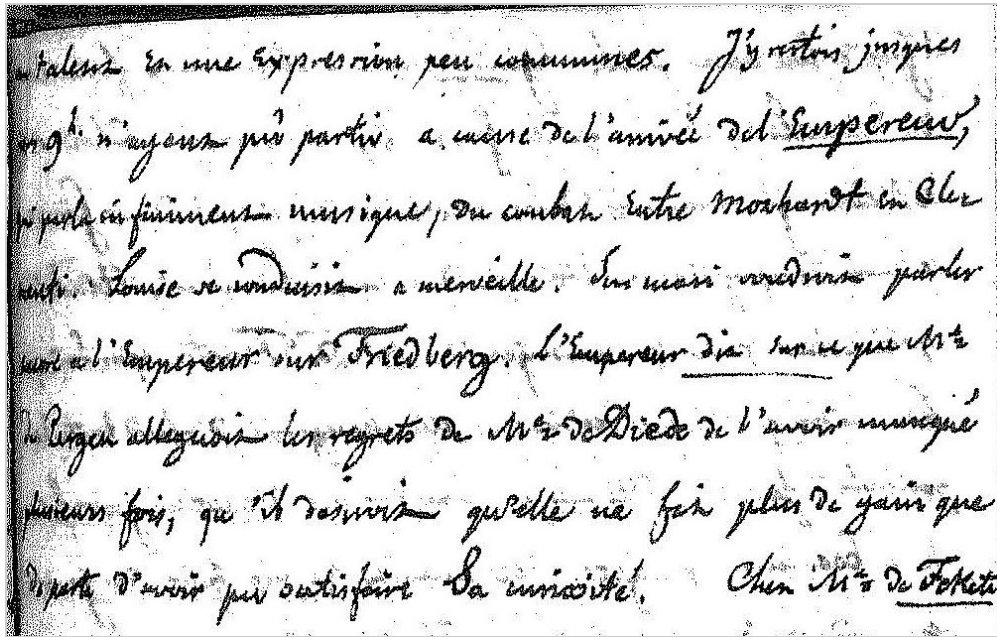 talent et une expression peu communes. J'y restois jusques
9h. n'ayant pû partir a cause de l'arrivée de l'Empereur,
parla infiniment musique, du combat entre Mozhardt et Cle
menti. Louise se conduisit a merveille. Son mari voudroit parler
a l'Empereur sur Friedberg. L'Empereur dit sur ce que Me
de Pergen alleguoit les regrets de Me de Diede de l'avoir manqué
plusieurs fois, qu'il desiroit qu'elle ne fit plus de gain que
de perte d'avoir pu satisfaire Sa curiosité. Chez Me de Fekete